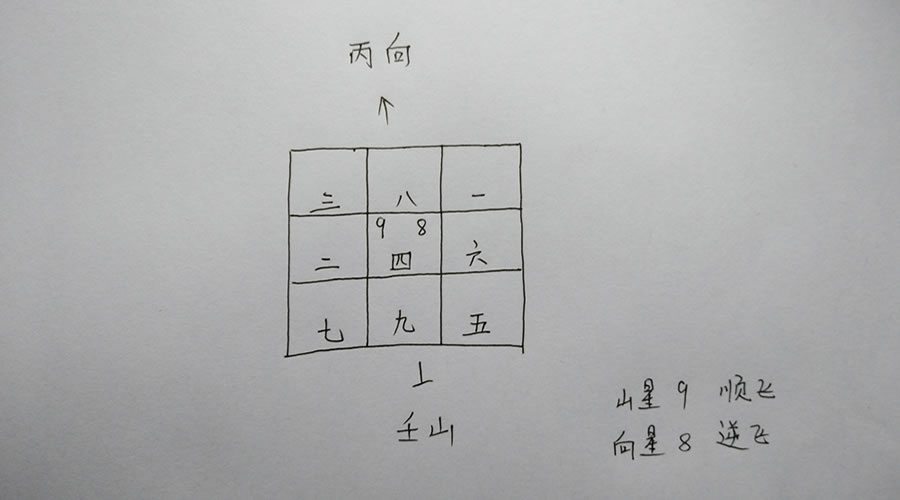 丙向
三 八 一
9 8
二 四 六
七 九 五
壬山
山星 9 顺飞
向星 8 逆飞